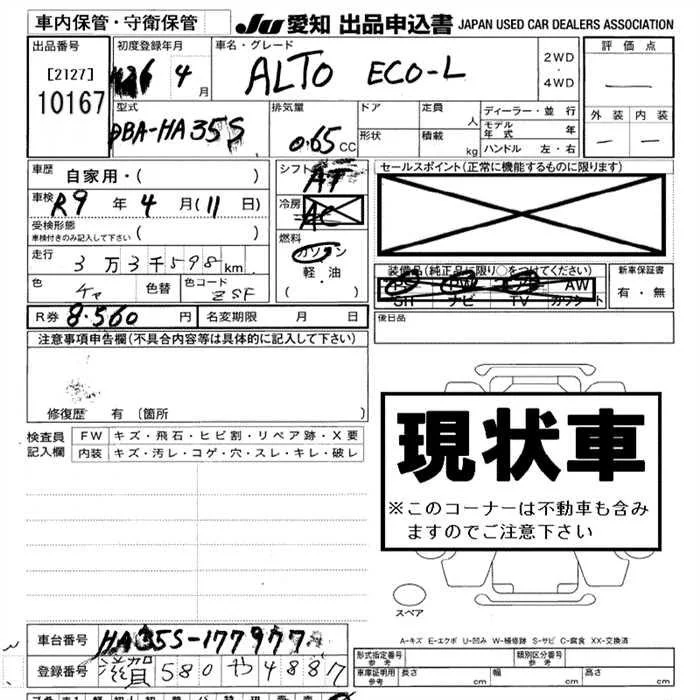 車内保管・守衛保管
JU 愛知 出品申込書 JAPAN USED CAR DEALERS ASSOCIATION
出品番号
[2127]
10167
初度登録年月
26 4 月
車名・グレード
ALTO ECO-L
2WD
・
4WD
評価点
—
外装 内装
— —
型式
DBA-HA35S
排気量
0.65 CC
ドア
形状
定員 人
積載 kg
ディーラー・並行
モデル年式 年
ハンドル 左・右
車歴 自家用・( )
車検 R9 年 4 月(11日)
受検形態
車検付きのみ記入して下さい ( )
走行 3万3千598km
色 色替 色コード
ZSF
シフト
AT
冷房
AC
燃料
ガソリン
軽・油
(・ )
セールスポイント(正常に機能するものに限ります)
装備品(純正品に限り○をつけてください)
PS PW エアB AW
SR ナビ TV カワシート
新車保証書
有・無
後日品
R券 8.560 円 名変期限 月 日
注意事項申告欄(不具合内容等は具体的に記入して下さい)
修復歴 有(箇所 )
検査員
記入欄
FW キズ・飛石・ヒビ割・リペア跡・X要
内装 キズ・汚レ・コゲ・穴・スレ・キレ・破レ
現状車
※このコーナーは不動車も含み
ますのでご注意下さい
スペア
A-キズ E-エクボ U-凹み W-補修跡 S-サビ C-腐食 XX-交換済
車台番号 HA35S-177977
登録番号 滋賀 580 や 4887
形式指定番号
参考
類別区分番号
参考
車庫証明用
参考
長さ cm 幅 cm 高さ cm